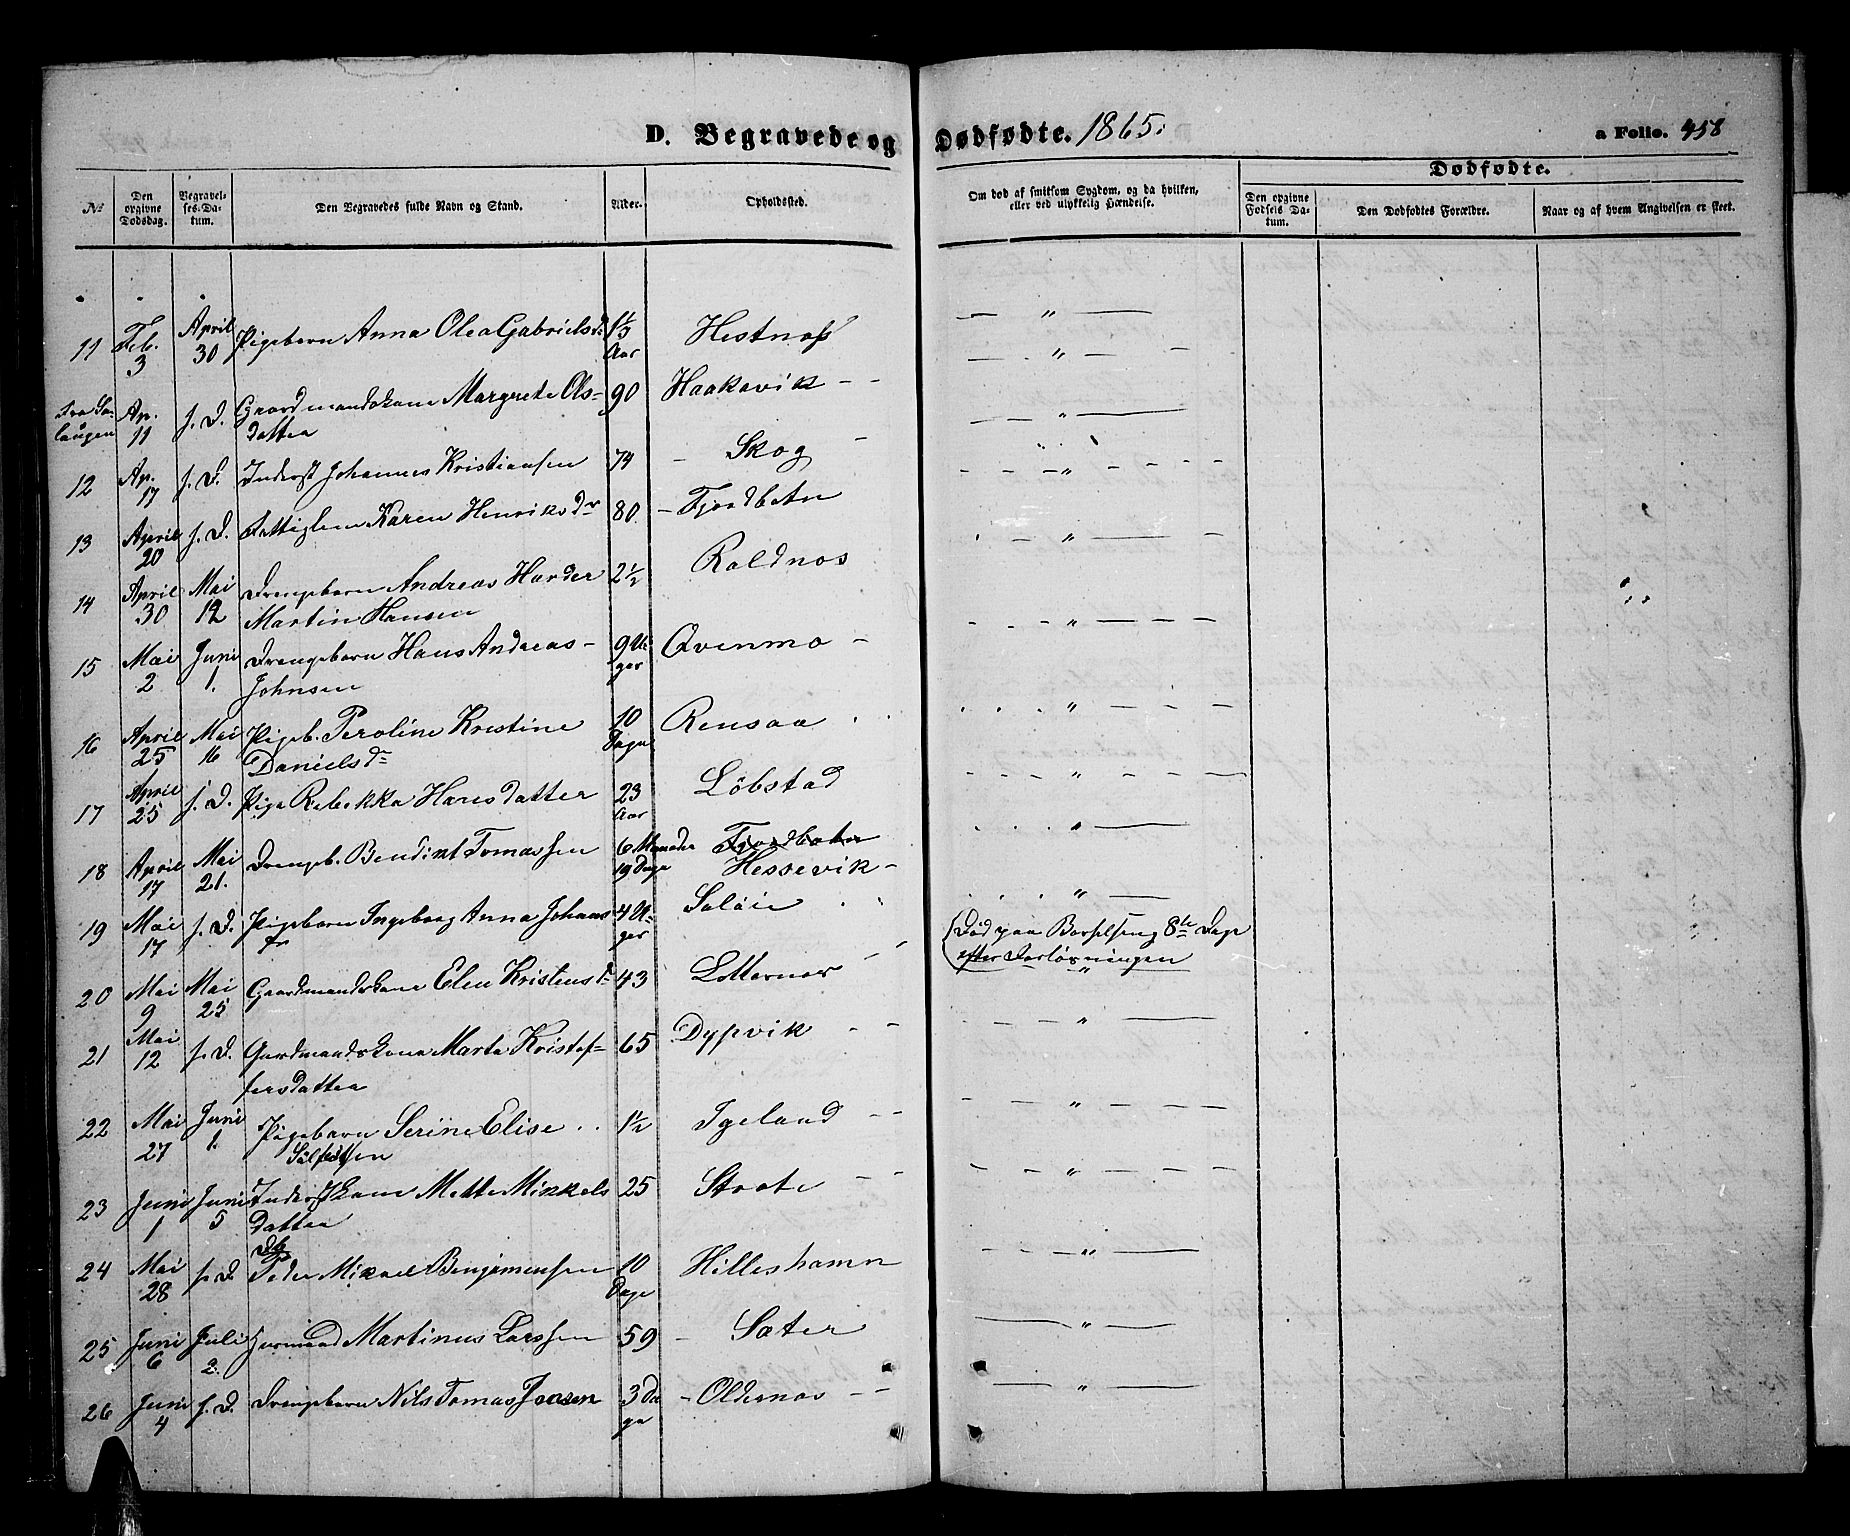 D. Begravede og Dødfødte. 1865.
a Folio. 458
Dødfødte.
No
Den opgivne Dødsdag.
Begravelses-Datum.
Den Begravedes fulde Navn og Stand.
Alder.
Opholdssted.
Om død af smitsom Sygdom, og da hvilken, eller ved ulykkelig Hændelse.
Den opgivne Fødsels Datum.
Den Dødfødtes Forældre.
Naar og af hvem Angivelsen er skeet.
11 Feb. 3 April 30 Pigebarn Anna Olea Gabrielsdr 1 1/3 Aar Hestnæs
Ap. 11 s. D. Gaardmandskone Margrete Ols- 90 Haakavik
datter
12 Ap. 17 s. D. Inderst Johannes Kristiansen 74 Skog
13 April 20 s. D. Fattiglem Karen Henriksdr 80 Fjordbotn
14 April 30 Mai 12 Drengebarn Andreas Harder 2 1/2 Roldnos
Martin Hansen
15 Mai 2 Juni 1. Drengebarn Hans Andreas 9 Uger Qvenmo
Johnsen
16 April 25 Mai 16 Pigeb. Peroline Kristine 10 Dage Rensaa
Danielsdr
17 April 25 s. D. Pige Rebekka Hansdatter 23 Aar Løbstad
18 April 17 Mai 21. Drengeb. Bendikt Tomassen 6 Maaneder 19 Dage Fjordbotn
Hessevik
19 Mai 17 s. D. Pigebarn Ingeborg Anna Johans- 4 Uger Saløie
dr
20 Mai 9 Mai 25 Gaardmandskone Elen Kristensdr 43 Lotternes (Død paa Barselseng 8de Dage
efter Forløsningen
21 Mai 12 s. D. Gardmandskone Marta Kristof- 65 Dypvik
fersdatter
22 Mai 27 Juni 1. Pigebarn Serine Elise 1 1/2 Igeland
23 Juni 1 Juni 5 Inderstkone Mette Mikkels 25 Strate
datter
Db
24 Mai 28 s. D. Peder Mikael Benjamensen 10 Dage Hilleshamn
25 Juni 6 Juli 2. Gurmand Martinus Larssen 59 Sæter
26 Juni 4 s. D. Drengebarn Nils Tomas Jensen 3 Dage Oldernos